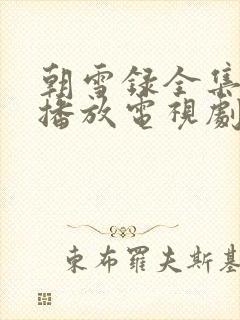 朝雪録全集
播放電視劇
東布羅夫斯基